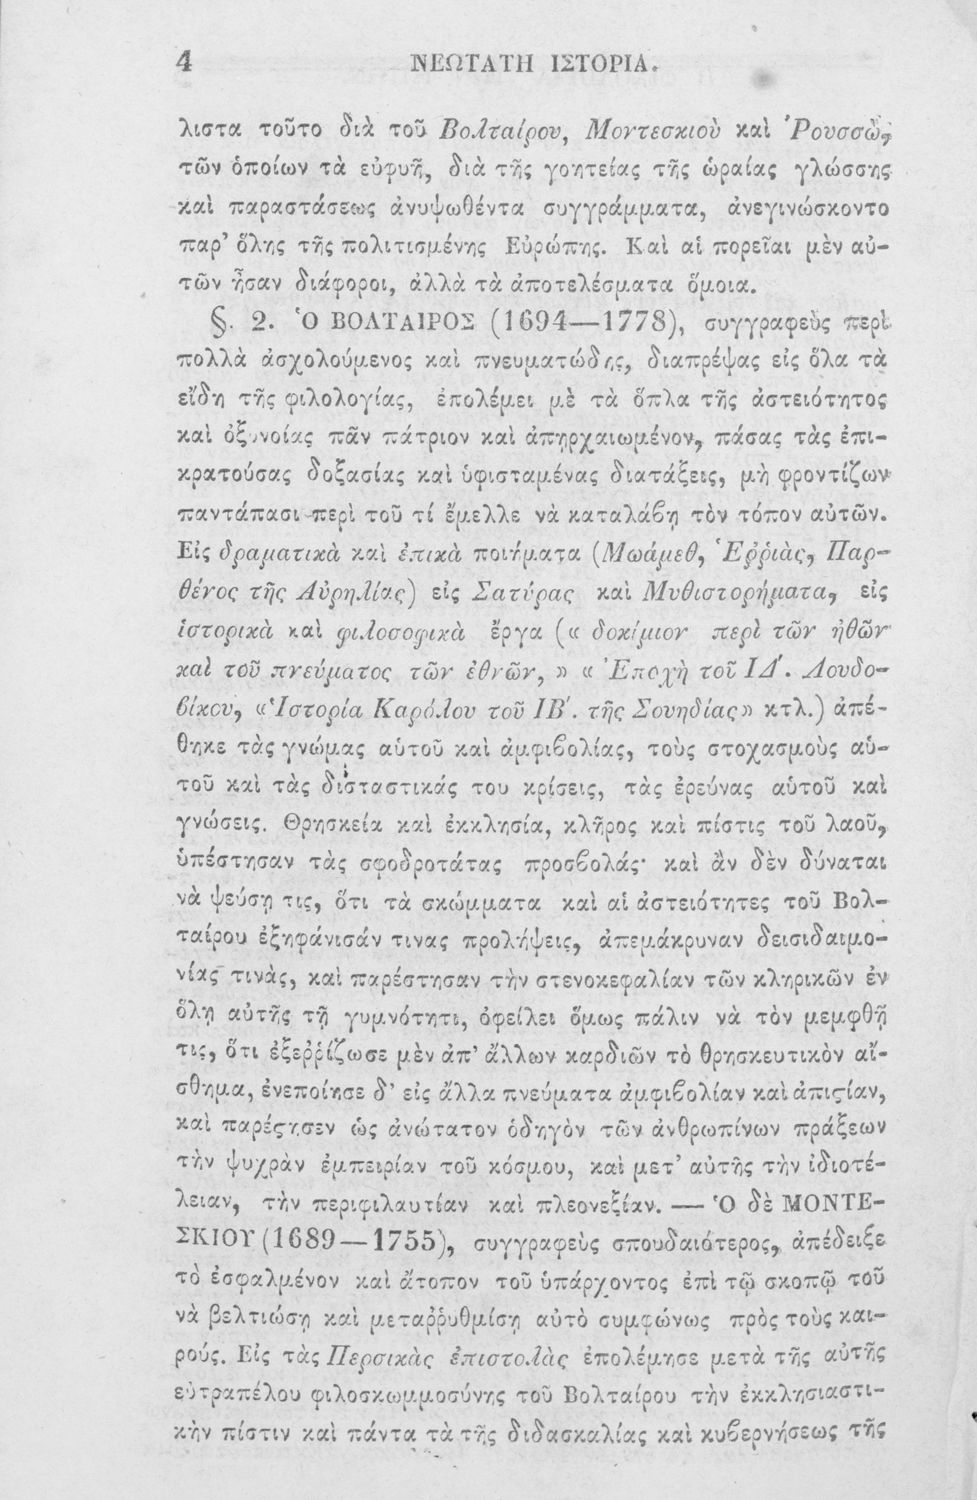 4 ΝΕΩΤΑΤΗ ΙΣΤΟΡΙΑ.
λιστα τοῦτο διὰ τοῦ Βολταίρου, Μοντεσκιοὺ καὶ Ῥουσσὼ,
τῶν ὁποίων τὰ εὐφυῆ, διὰ τῆς γοητείας τῆς ὡραίας γλώσσης
καὶ παραστάσεως ἀνυψωθέντα συγγράμματα, ἀνεγινώσκοντο
παρ’ ὅλης τῆς πολιτισμένης Εὐρώπης. Καὶ αἱ πορεῖαι μὲν αὐ-
τῶν ἦσαν διάφοροι, ἀλλὰ τὰ ἀποτελέσματα ὅμοια.
§. 2. Ὁ ΒΟΛΤΑΙΡΟΣ (1694—1778), συγγραφεὺς περὶ
πολλὰ ἀσχολούμενος καὶ πνευματώδης, διαπρέψας εἰς ὅλα τὰ
εἴδη τῆς φιλολογίας, ἐπολέμει μὲ τὰ ὅπλα τῆς ἀστειότητος
καὶ ὀξυνοίας πᾶν πάτριον καὶ ἀπηρχαιωμένον, πάσας τὰς ἐπι-
κρατούσας δοξασίας καὶ ὑφισταμένας διατάξεις, μὴ φροντίζων
παντάπασι περὶ τοῦ τί ἔμελλε νὰ καταλάβῃ τὸν τόπον αὐτῶν.
Εἰς δραματικὰ καὶ ἐπικὰ ποιήματα (Μωάμεθ, Ἑῤῥιὰς, Παρ-
θένος τῆς Αὐρηλίας) εἰς Σατύρας καὶ Μυθιστορήματα, εἰς
ἱστορικὰ καὶ φιλοσοφικὰ ἔργα (« δοκίμιον περὶ τῶν ἠθῶν
καὶ τοῦ πνεύματος τῶν ἐθνῶν, » « Ἐποχὴ τοῦ ΙΔ΄. Λουδο-
βίκου, «Ἱστορία Καρόλου τοῦ ΙΒ΄. τῆς Σουηδίας» κτλ.) ἀπέ-
θηκε τὰς γνώμας αὑτοῦ καὶ ἀμφιβολίας, τοὺς στοχασμοὺς αὑ-
τοῦ καὶ τὰς δισταστικάς του κρίσεις, τὰς ἐρεύνας αὑτοῦ καὶ
γνώσεις. Θρησκεία καὶ ἐκκλησία, κλῆρος καὶ πίστις τοῦ λαοῦ,
ὑπέστησαν τὰς σφοδροτάτας προσβολάς· καὶ ἂν δὲν δύναται
νὰ ψεύσῃ τις, ὅτι τὰ σκώμματα καὶ αἱ ἀστειότητες τοῦ Βολ-
ταίρου ἐξηφάνισάν τινας προλήψεις, ἀπεμάκρυναν δεισιδαιμο-
νίας τινὰς, καὶ παρέστησαν τὴν στενοκεφαλίαν τῶν κληρικῶν ἐν
ὅλῃ αὐτῆς τῇ γυμνότητι, ὀφείλει ὅμως πάλιν νὰ τὸν μεμφθῇ
τις, ὅτι ἐξεῤῥίζωσε μὲν ἀπ’ ἄλλων καρδιῶν τὸ θρησκευτικὸν αἴ-
σθημα, ἐνεποίησε δ’ εἰς ἄλλα πνεύματα ἀμφιβολίαν καὶ ἀπιςίαν,
καὶ παρέςησεν ὡς ἀνώτατον ὁδηγὸν τῶν ἀνθρωπίνων πράξεων
τὴν ψυχρὰν ἐμπειρίαν τοῦ κόσμου, καὶ μετ’ αὐτῆς τὴν ἰδιοτέ-
λειαν, τὴν περιφιλαυτίαν καὶ πλεονεξίαν. — Ὁ δὲ ΜΟΝΤΕ-
ΣΚΙΟΥ (1689—1755), συγγραφεὺς σπουδαιότερος, ἀπέδειξε
τὸ ἐσφαλμένον καὶ ἄτοπον τοῦ ὑπάρχοντος ἐπὶ τῷ σκοπῷ τοῦ
νὰ βελτιώσῃ καὶ μεταῤῥυθμίσῃ αὐτὸ συμφώνως πρὸς τοὺς και-
ρούς. Εἰς τὰς Περσικὰς ἐπιστολὰς ἐπολέμησε μετὰ τῆς αὐτῆς
εὐτραπέλου φιλοσκωμμοσύνης τοῦ Βολταίρου τὴν ἐκκλησιαστι-
κὴν πίστιν καὶ πάντα τὰ τῆς διδασκαλίας καὶ κυβερνήσεως τῆς